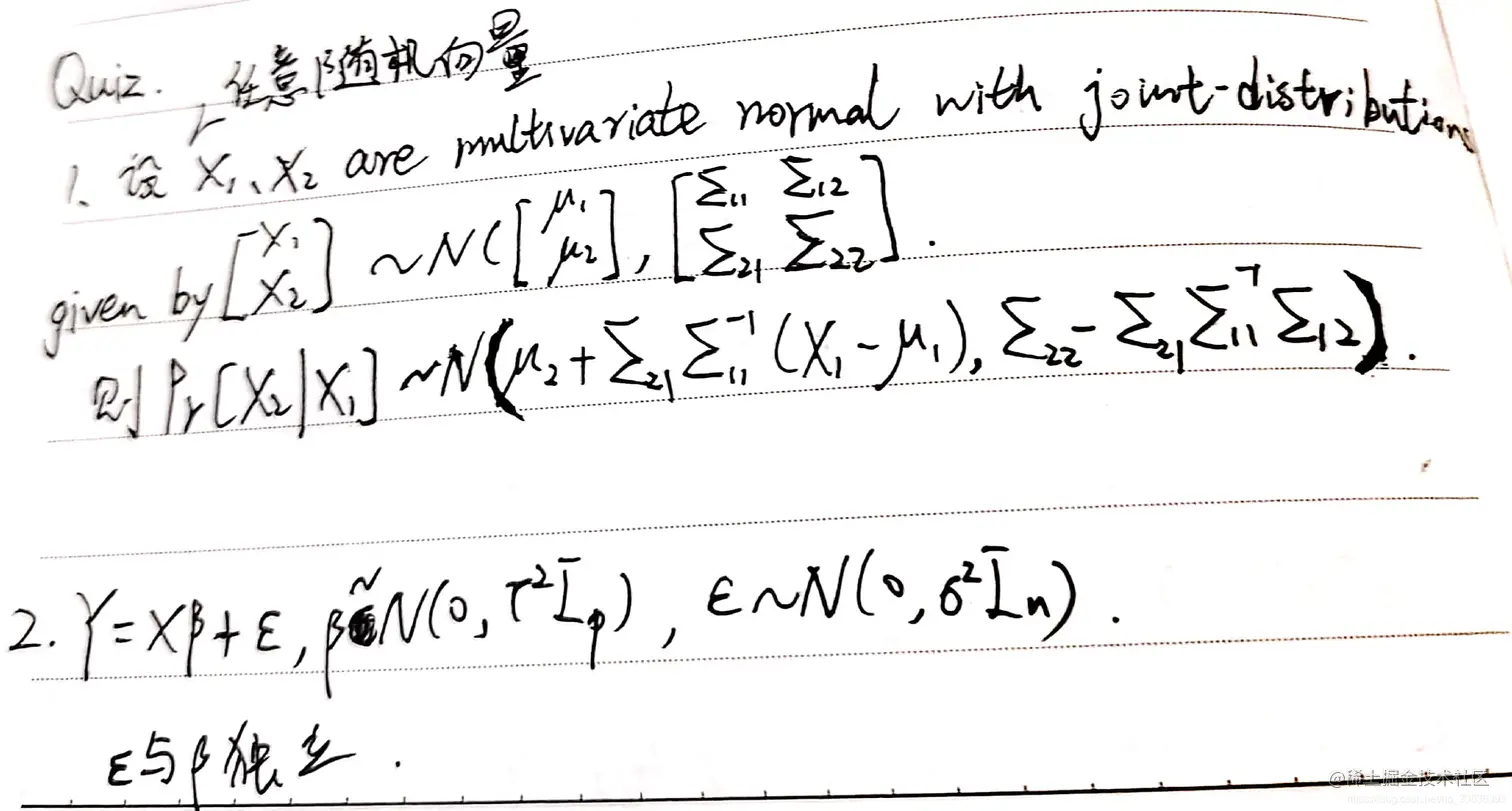 Quiz. 任意随机向量
1. 设 X₁、X₂ are multivariate normal with joint-distributions
given by [X₁ X₂] ~ N([μ₁ μ₂], [Σ₁₁ Σ₁₂ Σ₂₁ Σ₂₂].
则 Pr[X₂|X₁] ~N(μ₂+Σ₂₁Σ₁₁⁻¹(X₁-μ₁), Σ₂₂-Σ₂₁Σ₁₁⁻¹Σ₁₂).
2. Y=Xβ+ε, β~N(0, τ²Iₚ), ε~N(0, σ²Iₙ).
ε与β独立.
@稀土掘金技术社区